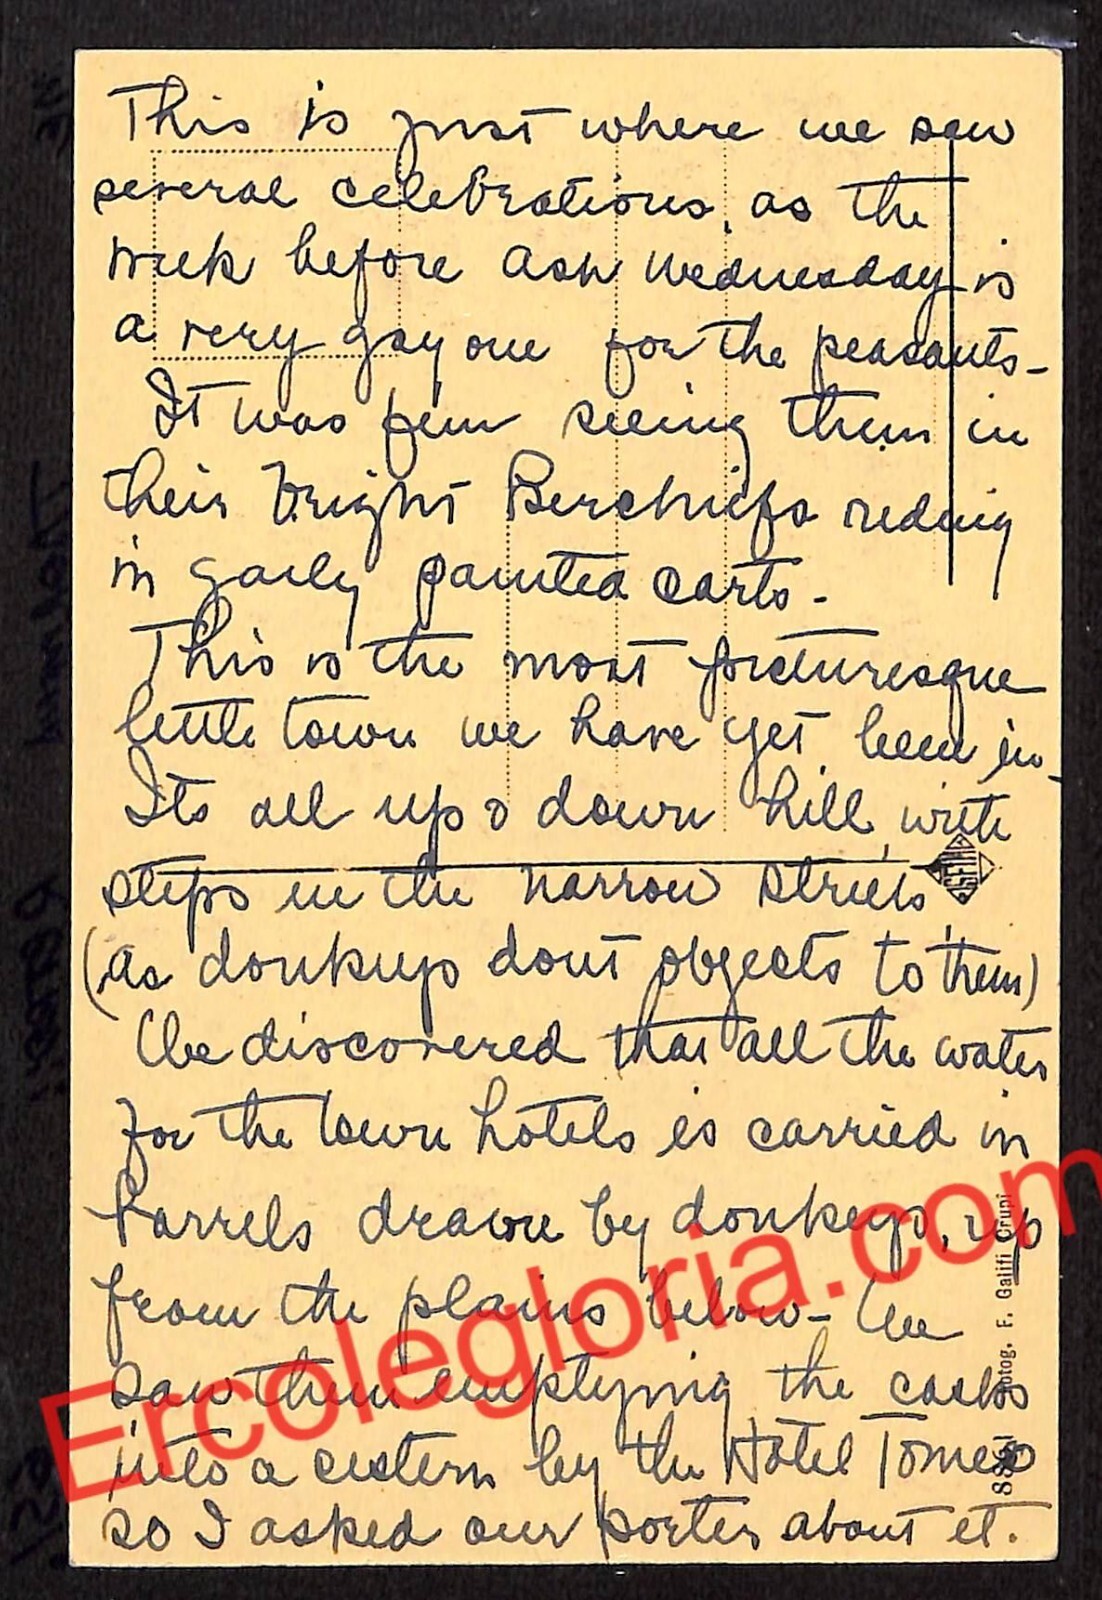 This is just where we saw
several celebrations, as the
week before Ash Wednesday is
a very gay one for the peasants-
It was fun seeing them in
their bright Kerchiefs riding
in gaily painted carts-
This is the most picturesque
little town we have yet been in-
Its all up & down hill, with
steps in the narrow streets
(as donkeys dont objects to them)
We discovered that all the water
for the town hotels is carried in
barrels drawn by donkeys, up
from the plains below- We
saw them emptying the casks
into a cistern by the Hotel
so I asked our porter about it.
F. Galifi Crupi
Ercolegloria.com